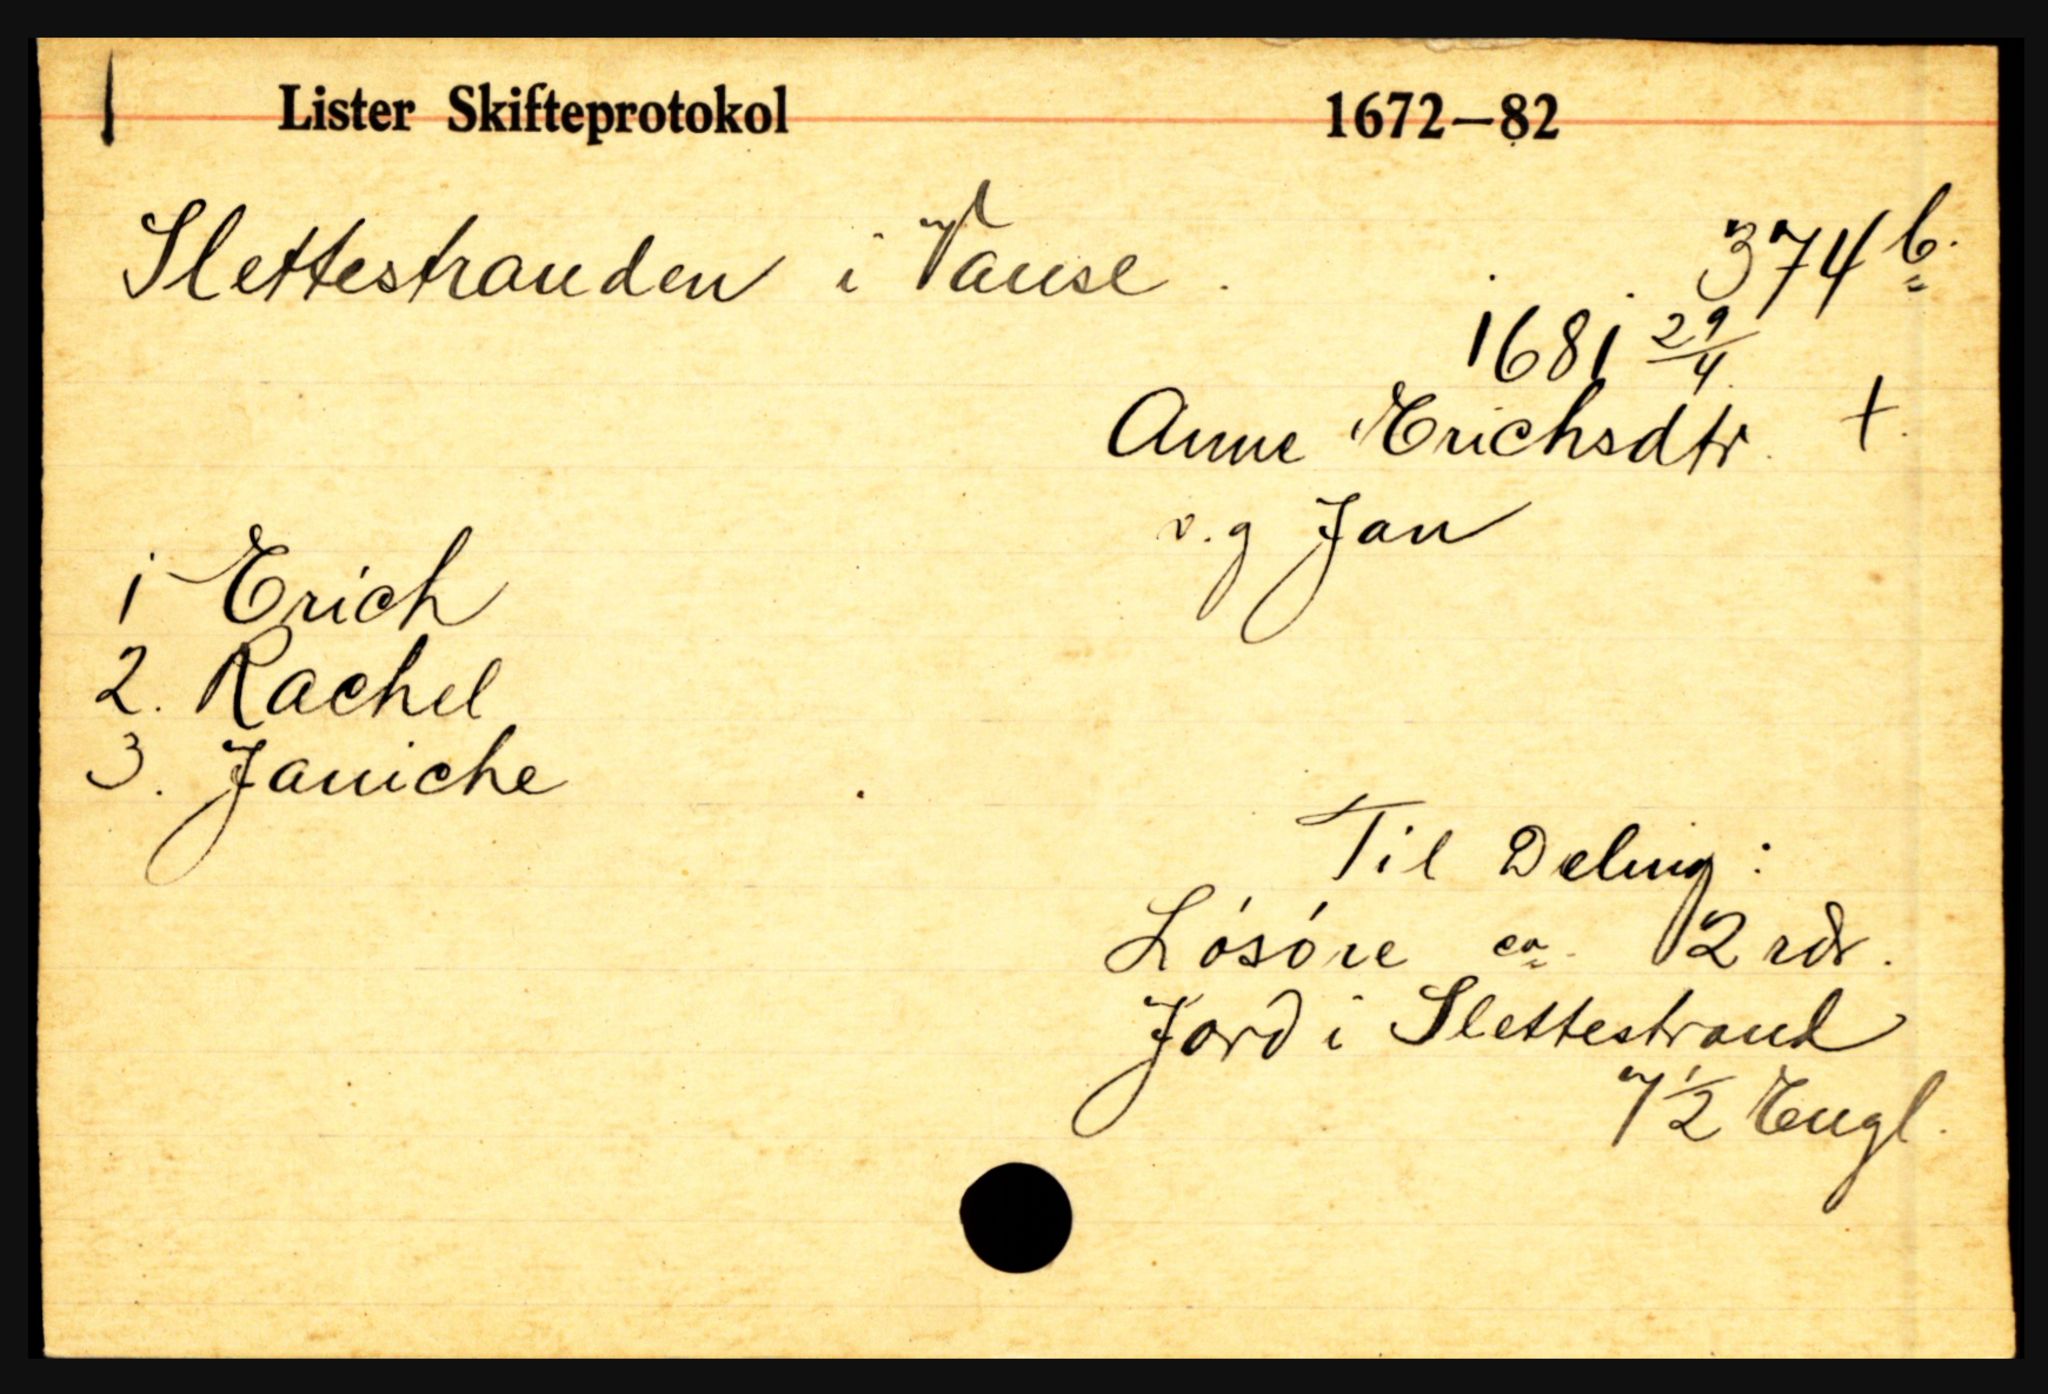 1 Lister Skifteprotokol 1672–82
Slettestranden i Vanse. 374 b.
1681 29/4
Anne Erichsdtr. †.
v.g Jan
1 Erich
2. Rachel
3. Janiche
Til Deling:
Lósóre ca. 12 rdr.
Jord i Slettestrand
7 1/2 Engl.